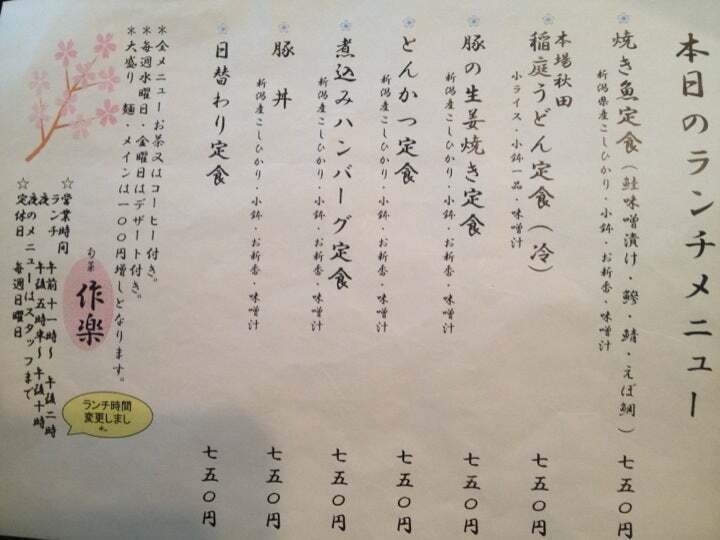 本日のランチメニュー
焼き魚定食(鮭味噌漬け・鯵・鯖・えぼ鯛) 七五〇円
新潟県産こしひかり・小鉢・お新香・味噌汁
本場秋田
稲庭うどん定食(冷) 七五〇円
小ライス・小鉢一品・味噌汁
豚の生姜焼き定食 七五〇円
新潟産こしひかり・小鉢・お新香・味噌汁
とんかつ定食 七五〇円
新潟産こしひかり・小鉢・お新香・味噌汁
煮込みハンバーグ定食 七五〇円
新潟産こしひかり・小鉢・お新香・味噌汁
豚丼 七五〇円
新潟産こしひかり・小鉢・お新香・味噌汁
日替わり定食 七五〇円
*全メニューお茶又はコーヒー付き。
*毎週水曜日・金曜日はデザート付き。
*大盛り 麺・メインは一〇〇円増しとなります。
旬菜 作楽
☆営業時間
ランチ 午前十一時〜午後二時
夜 午後五時半〜午後十時
夜のメニューはスタッフまで
☆定休日 毎週日曜日
ランチ時間
変更しまし